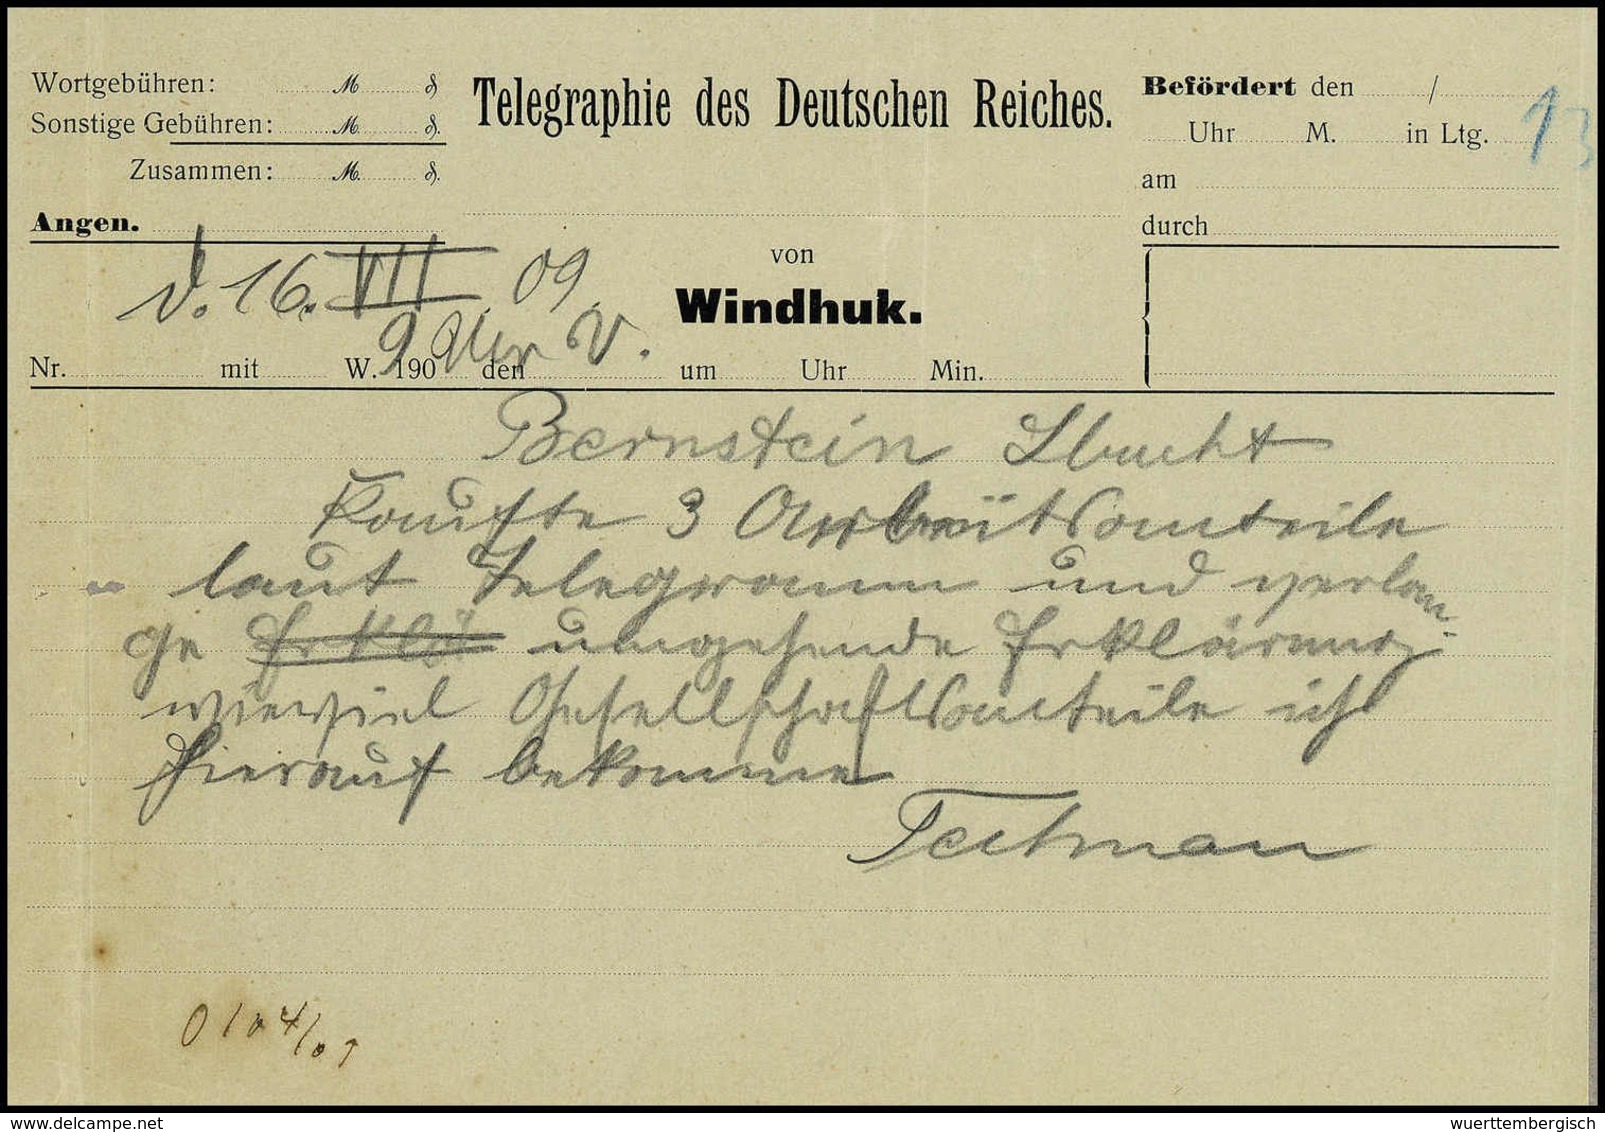 Wortgebühren: M ₰
Sonstige Gebühren: M ₰.
Zusammen: M. ₰.
Angen.
Telegraphie des Deutschen Reiches.
Befördert den /
Uhr M. in Ltg.
am
durch
13
d. 16. VII 09.
9 Uhr V.
von
Windhuk.
Nr. mit W. 190 den um Uhr Min.
Bernstein Lbucht
Kaufte 3 Anteile
laut Telegramm und verlan-
ge Erklä umgehende Erklärung
wieviel Gesellschaftsanteile ich
hierauf bekomme
delcampe.net
wuerttembergisch